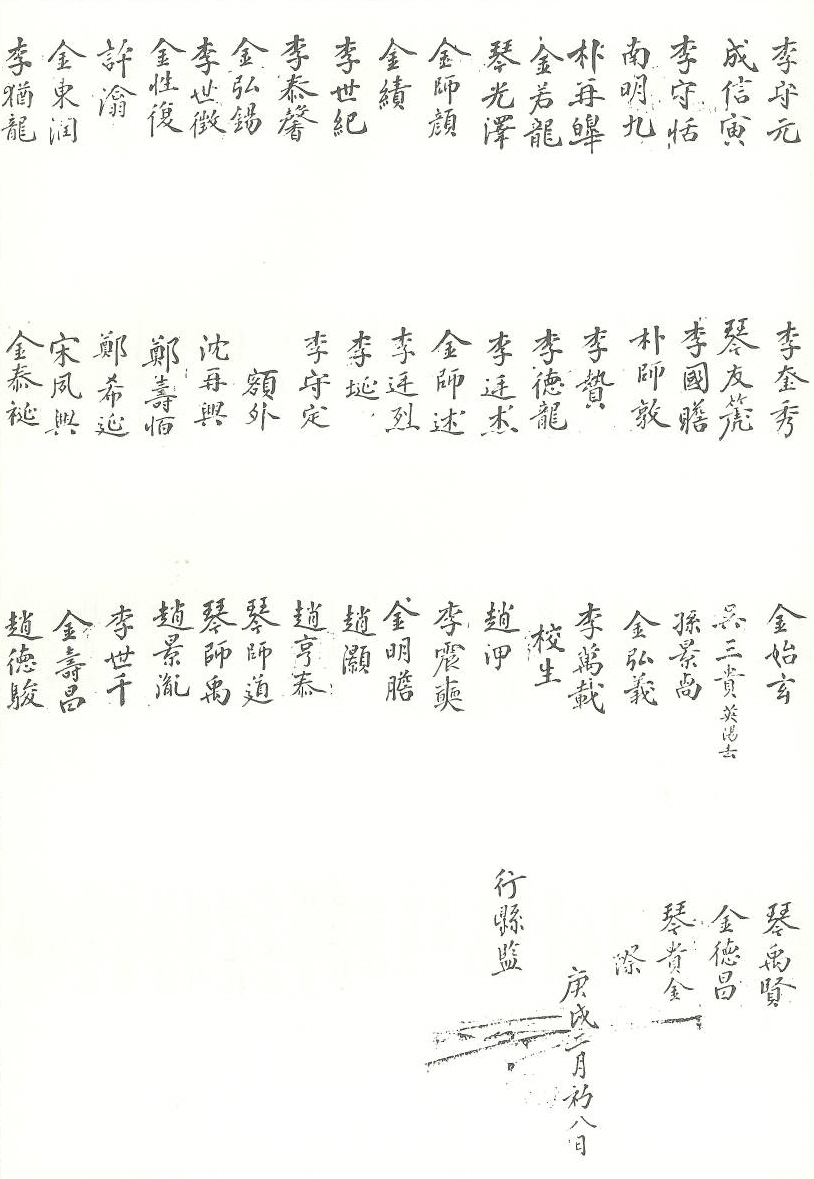 李守元
成信寅
李守恬
南明九
朴再皞
金若龍
琴光澤
金師顔
金績
李世紀
李泰馨
金弘錫
李世徵
金性復
許滃
金東润
李猶龍
李奎秀
琴友箎
李國瞻
朴師敦
李贄
李德龍
李廷杰
金師述
李廷烈
李埏
李守定
額外
沈再興
鄭壽恒
鄭希延
宋夙興
金泰挻
金始玄
吳三貴 英陽去
孫景尚
金弘義
李萬載
校生
趙泙
李震奭
金明瞻
趙灝
趙亨泰
琴師道
琴師禹
趙景胤
李世千
金壽昌
趙德駿
琴禹賢
金德昌
琴貴金
際
庚戌二月初八日
行縣監